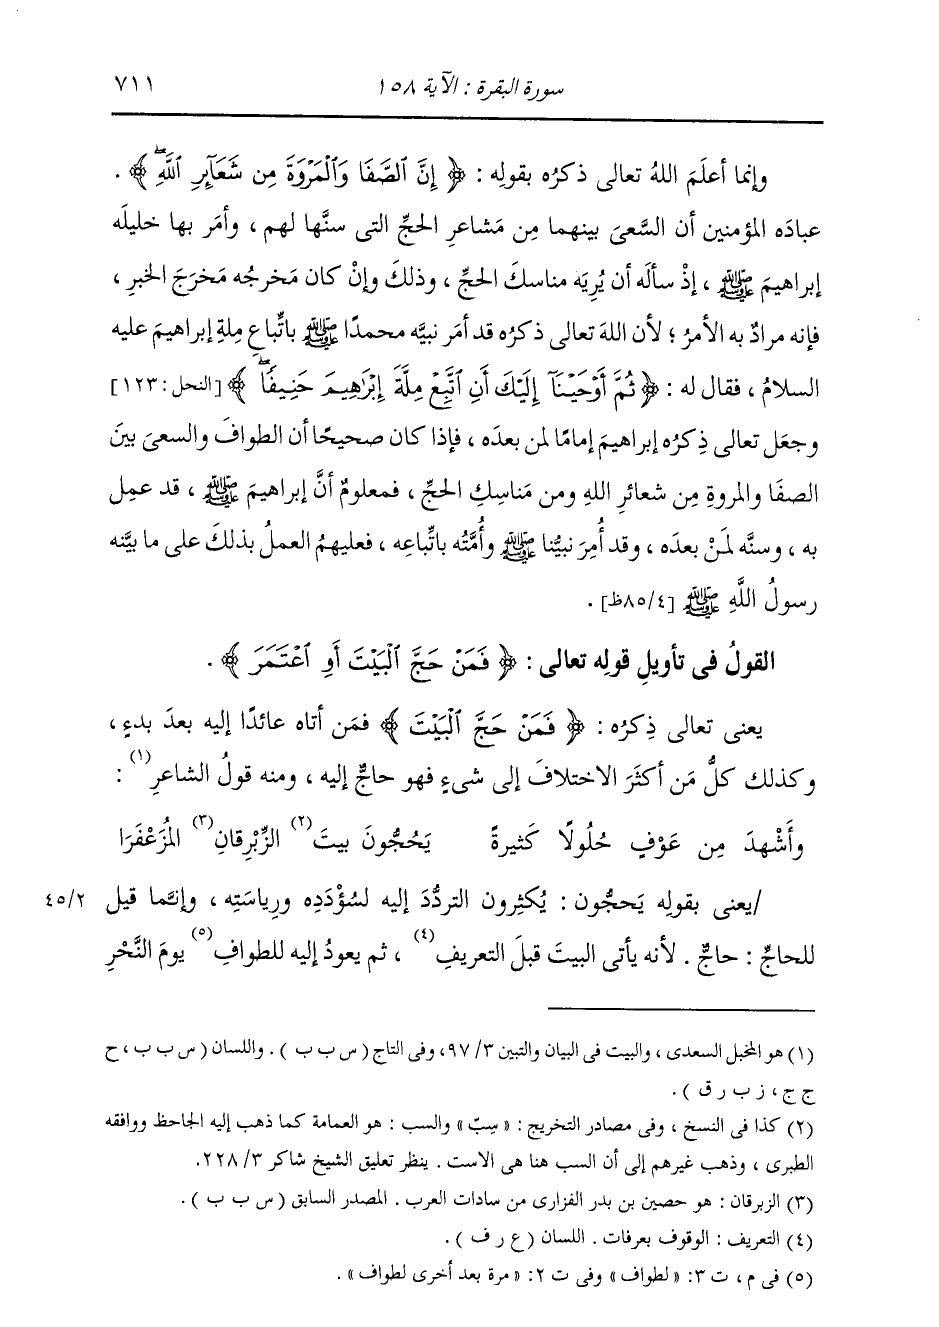 سورة البقرة : الآية ١٥٨
٧١١
وإنما أعلَم اللهُ تعالى ذكرُه بقولِه : ﴿ إِنَّ ٱلصَّفَا وَٱلْمَرْوَةَ مِن شَعَآئِرِ ٱللَّهِۖ ﴾ .
عبادَه المؤمنين أن السَّعىَ بينهما مِن مَشاعرِ الحجِّ التى سنَّها لهم ، وأمَر بها خليلَه
إبراهيمَ ﷺ ، إذْ سأله أن يُرِيَه مناسكَ الحجِّ ، وذلكَ وإنْ كان مَخرجُه مَخرَجَ الخبرِ ،
فإنه مرادٌ به الأمرُ ؛ لأن اللهَ تعالى ذكرُه قد أمَر نبيَّه محمدًا ﷺ باتِّباعِ مِلةِ إبراهيمَ عليه
السلامُ ، فقال له : ﴿ ثُمَّ أَوْحَيْنَآ إِلَيْكَ أَنِ ٱتَّبِعْ مِلَّةَ إِبْرَٰهِيمَ حَنِيفًاۖ ﴾ [النحل : ١٢٣]
وجعَل تعالى ذِكرُه إبراهيمَ إمامًا لمن بعدَه ، فإذا كان صحيحًا أن الطوافَ والسعىَ بينَ
الصفَا والمروةِ مِن شعائرِ اللهِ ومن مَناسِكِ الحجِّ ، فمعلومٌ أنَّ إبراهيمَ ﷺ ، قد عمِل
به ، وسنَّه لمَنْ بعدَه ، وقد أُمِرَ نبيُّنا ﷺ وأُمَّتُه باتِّباعِه ، فعليهمُ العملُ بذلكَ على ما بيَّنه
رسولُ اللَّهِ ﷺ [٨٥/٤ظ] .
القولُ فى تأويلِ قولِه تعالى : ﴿ فَمَنْ حَجَّ ٱلْبَيْتَ أَوِ ٱعْتَمَرَ ﴾ .
يعنى تعالى ذِكرُه : ﴿ فَمَنْ حَجَّ ٱلْبَيْتَ ﴾ فمَن أتاه عائدًا إليه بعدَ بدءٍ ،
وكذلك كلُّ مَن أكثَرَ الاختلافَ إلى شىءٍ فهو حاجٌّ إليه ، ومنه قولُ الشاعرِ(١) :
وأَشْهدَ مِن عَوْفٍ حُلُولًا كَثيرةً يَحُجُّونَ بيتَ(٢) الزِّبْرِقانِ(٣) المُزَعْفَرَا
/يعنى بقولِه يَحجُّون : يُكثِرون التردُّدَ إليه لسُؤْدَدِه ورِياستِه ، وإنَّما قيل
٤٥/٢
للحاجِّ : حاجٌّ . لأنه يأتى البيتَ قبلَ التعريفِ(٤) ، ثم يعودُ إليه للطوافِ(٥) يومَ النَّحْرِ
(١) هو المخبل السعدى ، والبيت فى البيان والتبين ٩٧/٣، وفى التاج ( س ب ب ) . واللسان ( س ب ب ، ح
ج ج ، ز ب ر ق ) .
(٢) كذا فى النسخ ، وفى مصادر التخريج : « سِبّ » والسب : هو العمامة كما ذهب إليه الجاحظ ووافقه
الطبرى ، وذهب غيرهم إلى أن السب هنا هى الاست . ينظر تعليق الشيخ شاكر ٢٢٨/٣.
(٣) الزبرقان : هو حصين بن بدر الفزارى من سادات العرب . المصدر السابق ( س ب ب ) .
(٤) التعريف : الوقوف بعرفات . اللسان ( ع ر ف ) .
(٥) فى م ، ت ٣: « لطواف » وفى ت ٢: « مرة بعد أخرى لطواف » .